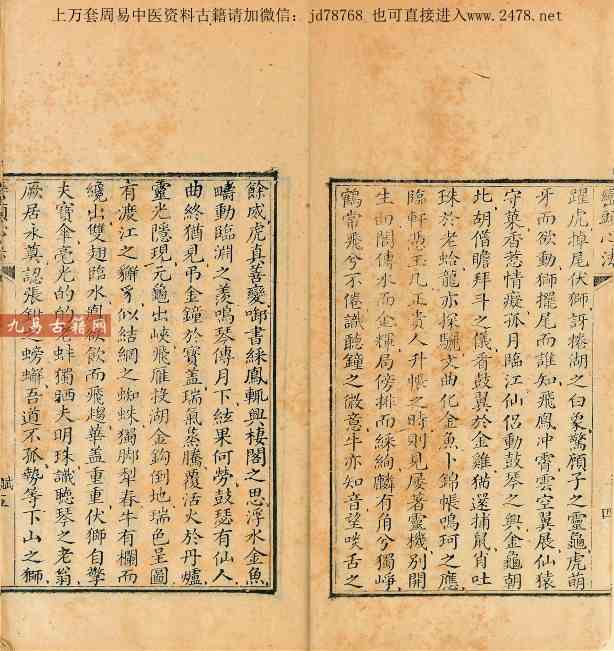 上万套周易中医资料古籍请加微信：jd78768 也可直接进入www.2478.net
躍虎掉尾伏獅訝捲湖之白象驚顧子之靈龜虎萌
牙而欲動獅擺尾而誰知飛鳳冲霄雲空翼展仙猿
守菓香惹情癡孤月臨江仙侣動鼓琴之興金龜朝
北胡僧瞻拜斗之儀看鼓翼於金雞猫還捕鼠肖吐
珠於老蛤龍亦探驪文曲化金魚卜錦帳鳴珂之應
臨軒憑玉几正貴人升帳之時則見屢著靈機别開
生面閣傳水而金輝局傍排而綵絢麟有角兮獨崢
鶴常飛兮不倦識聽鐘之微意牛亦知音望啖舌之
四
餘威虎真善變啣書綵鳳輒興棲閣之思浮水金魚
疇動臨淵之羨鳴琴傳月下絃果何勞鼓瑟有仙人
曲終猶見吊金鐘於寶蓋瑞氣蒸騰覆活火於丹爐
靈光隱現元龜出峽飛雁投湖金鈎倒地瑞色呈圖
有渡江之獬豸似結網之蜘蛛獨脚犁春牛有欄而
纔出雙翅臨水鳳飲而飛趨華蓋重重伏獅自擎
夫寶傘毫光的的老蚌獨晒夫明珠識聽琴之老翁
厥居永奠認張鉗之螃蠏吾道不孤勢等下山之獅
賦五
九易古籍网